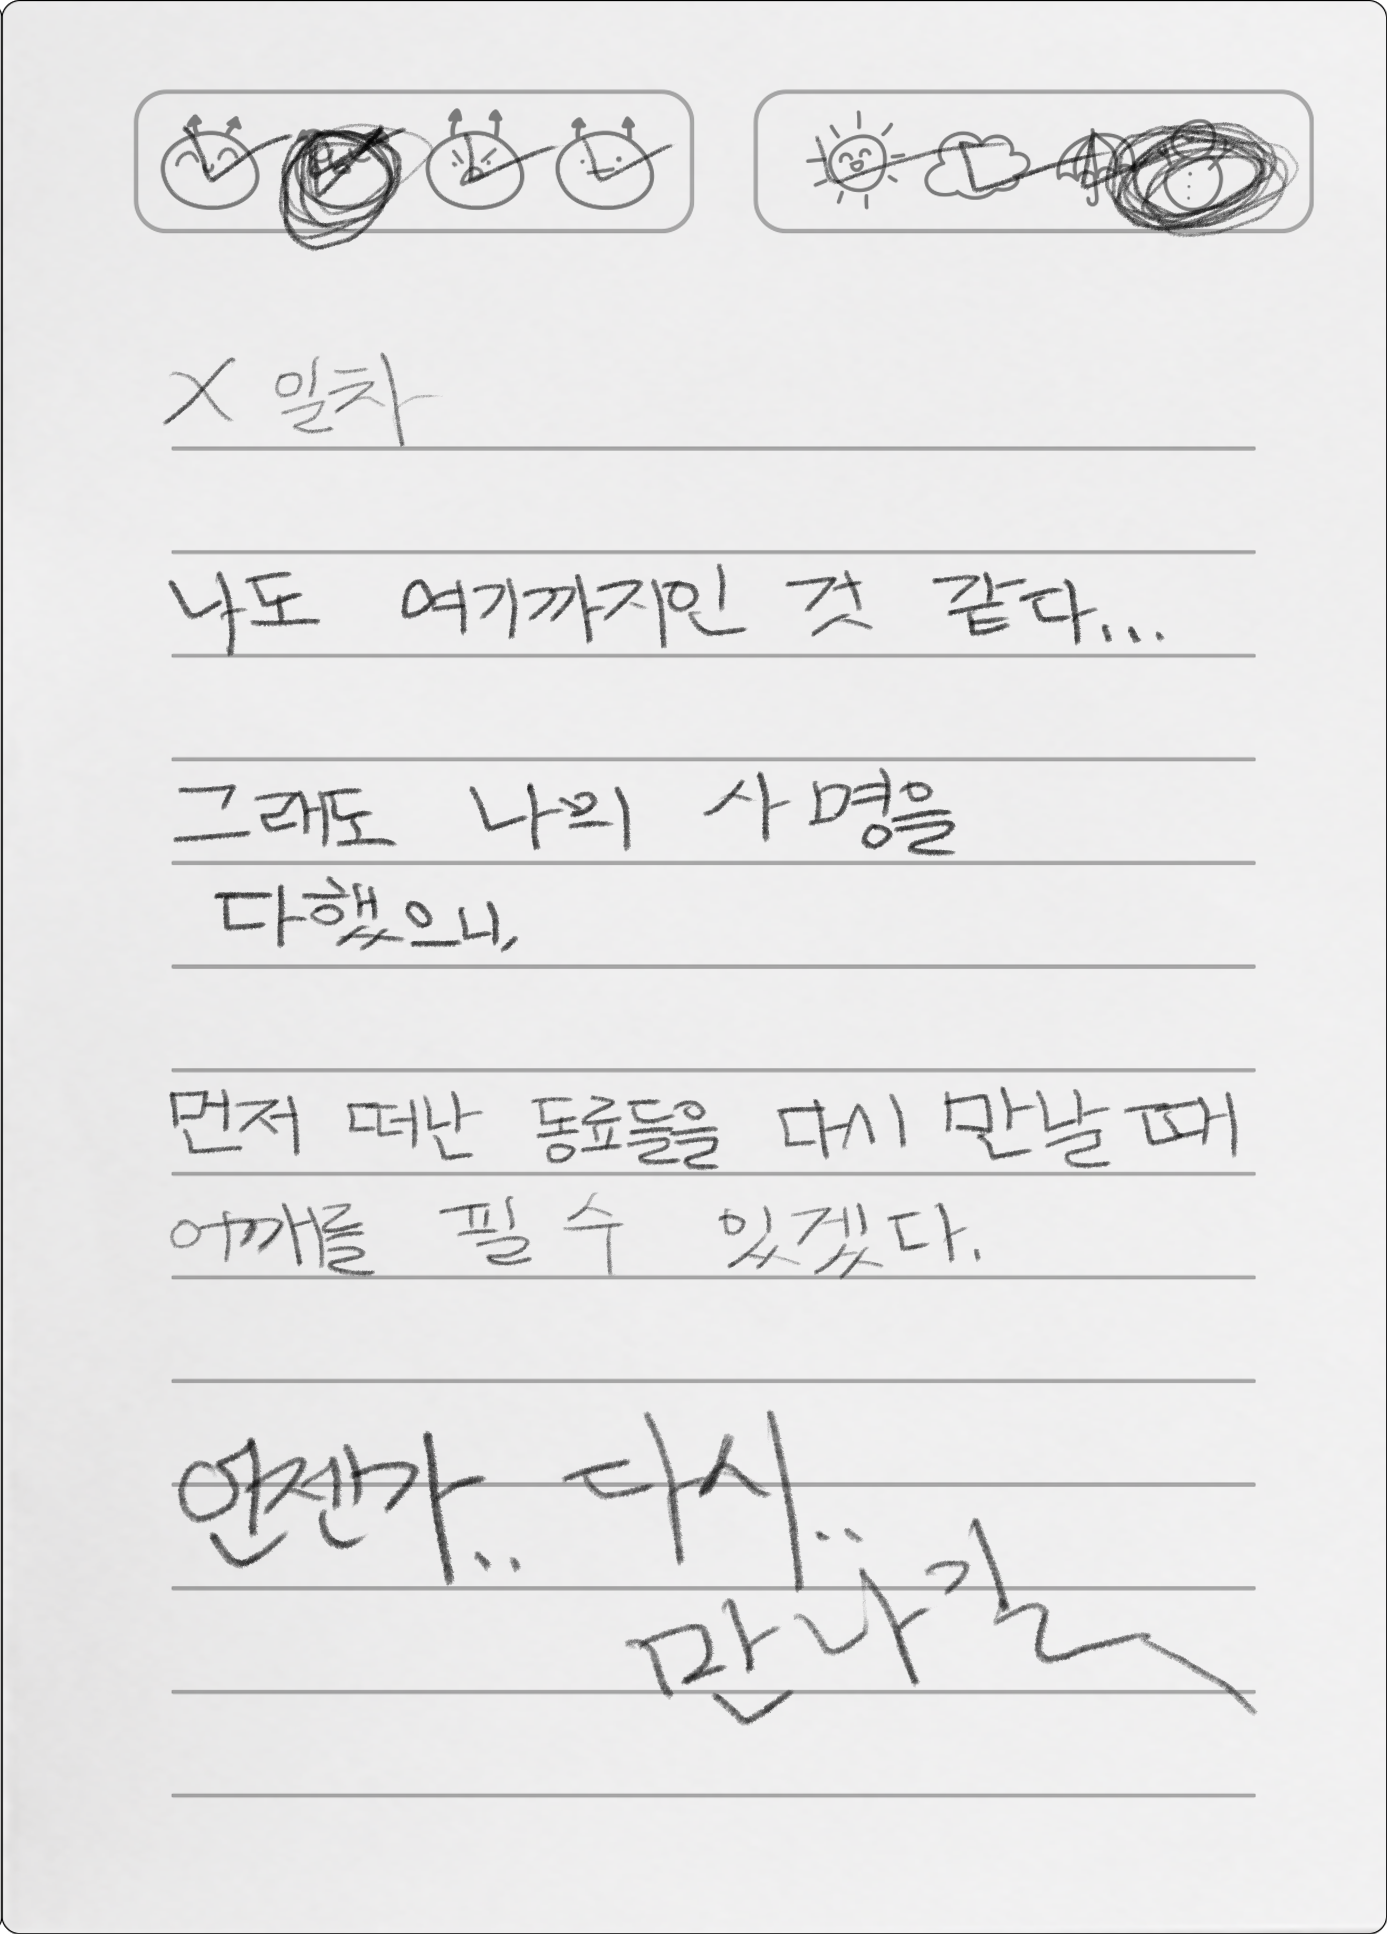 X 일차
나도 여기까지인 것 같다...
그래도 나의 사명을
다했으니,
먼저 떠난 동료들을 다시 만날 때
어깨를 필 수 있겠다.
언젠가.. 다시..
만나길